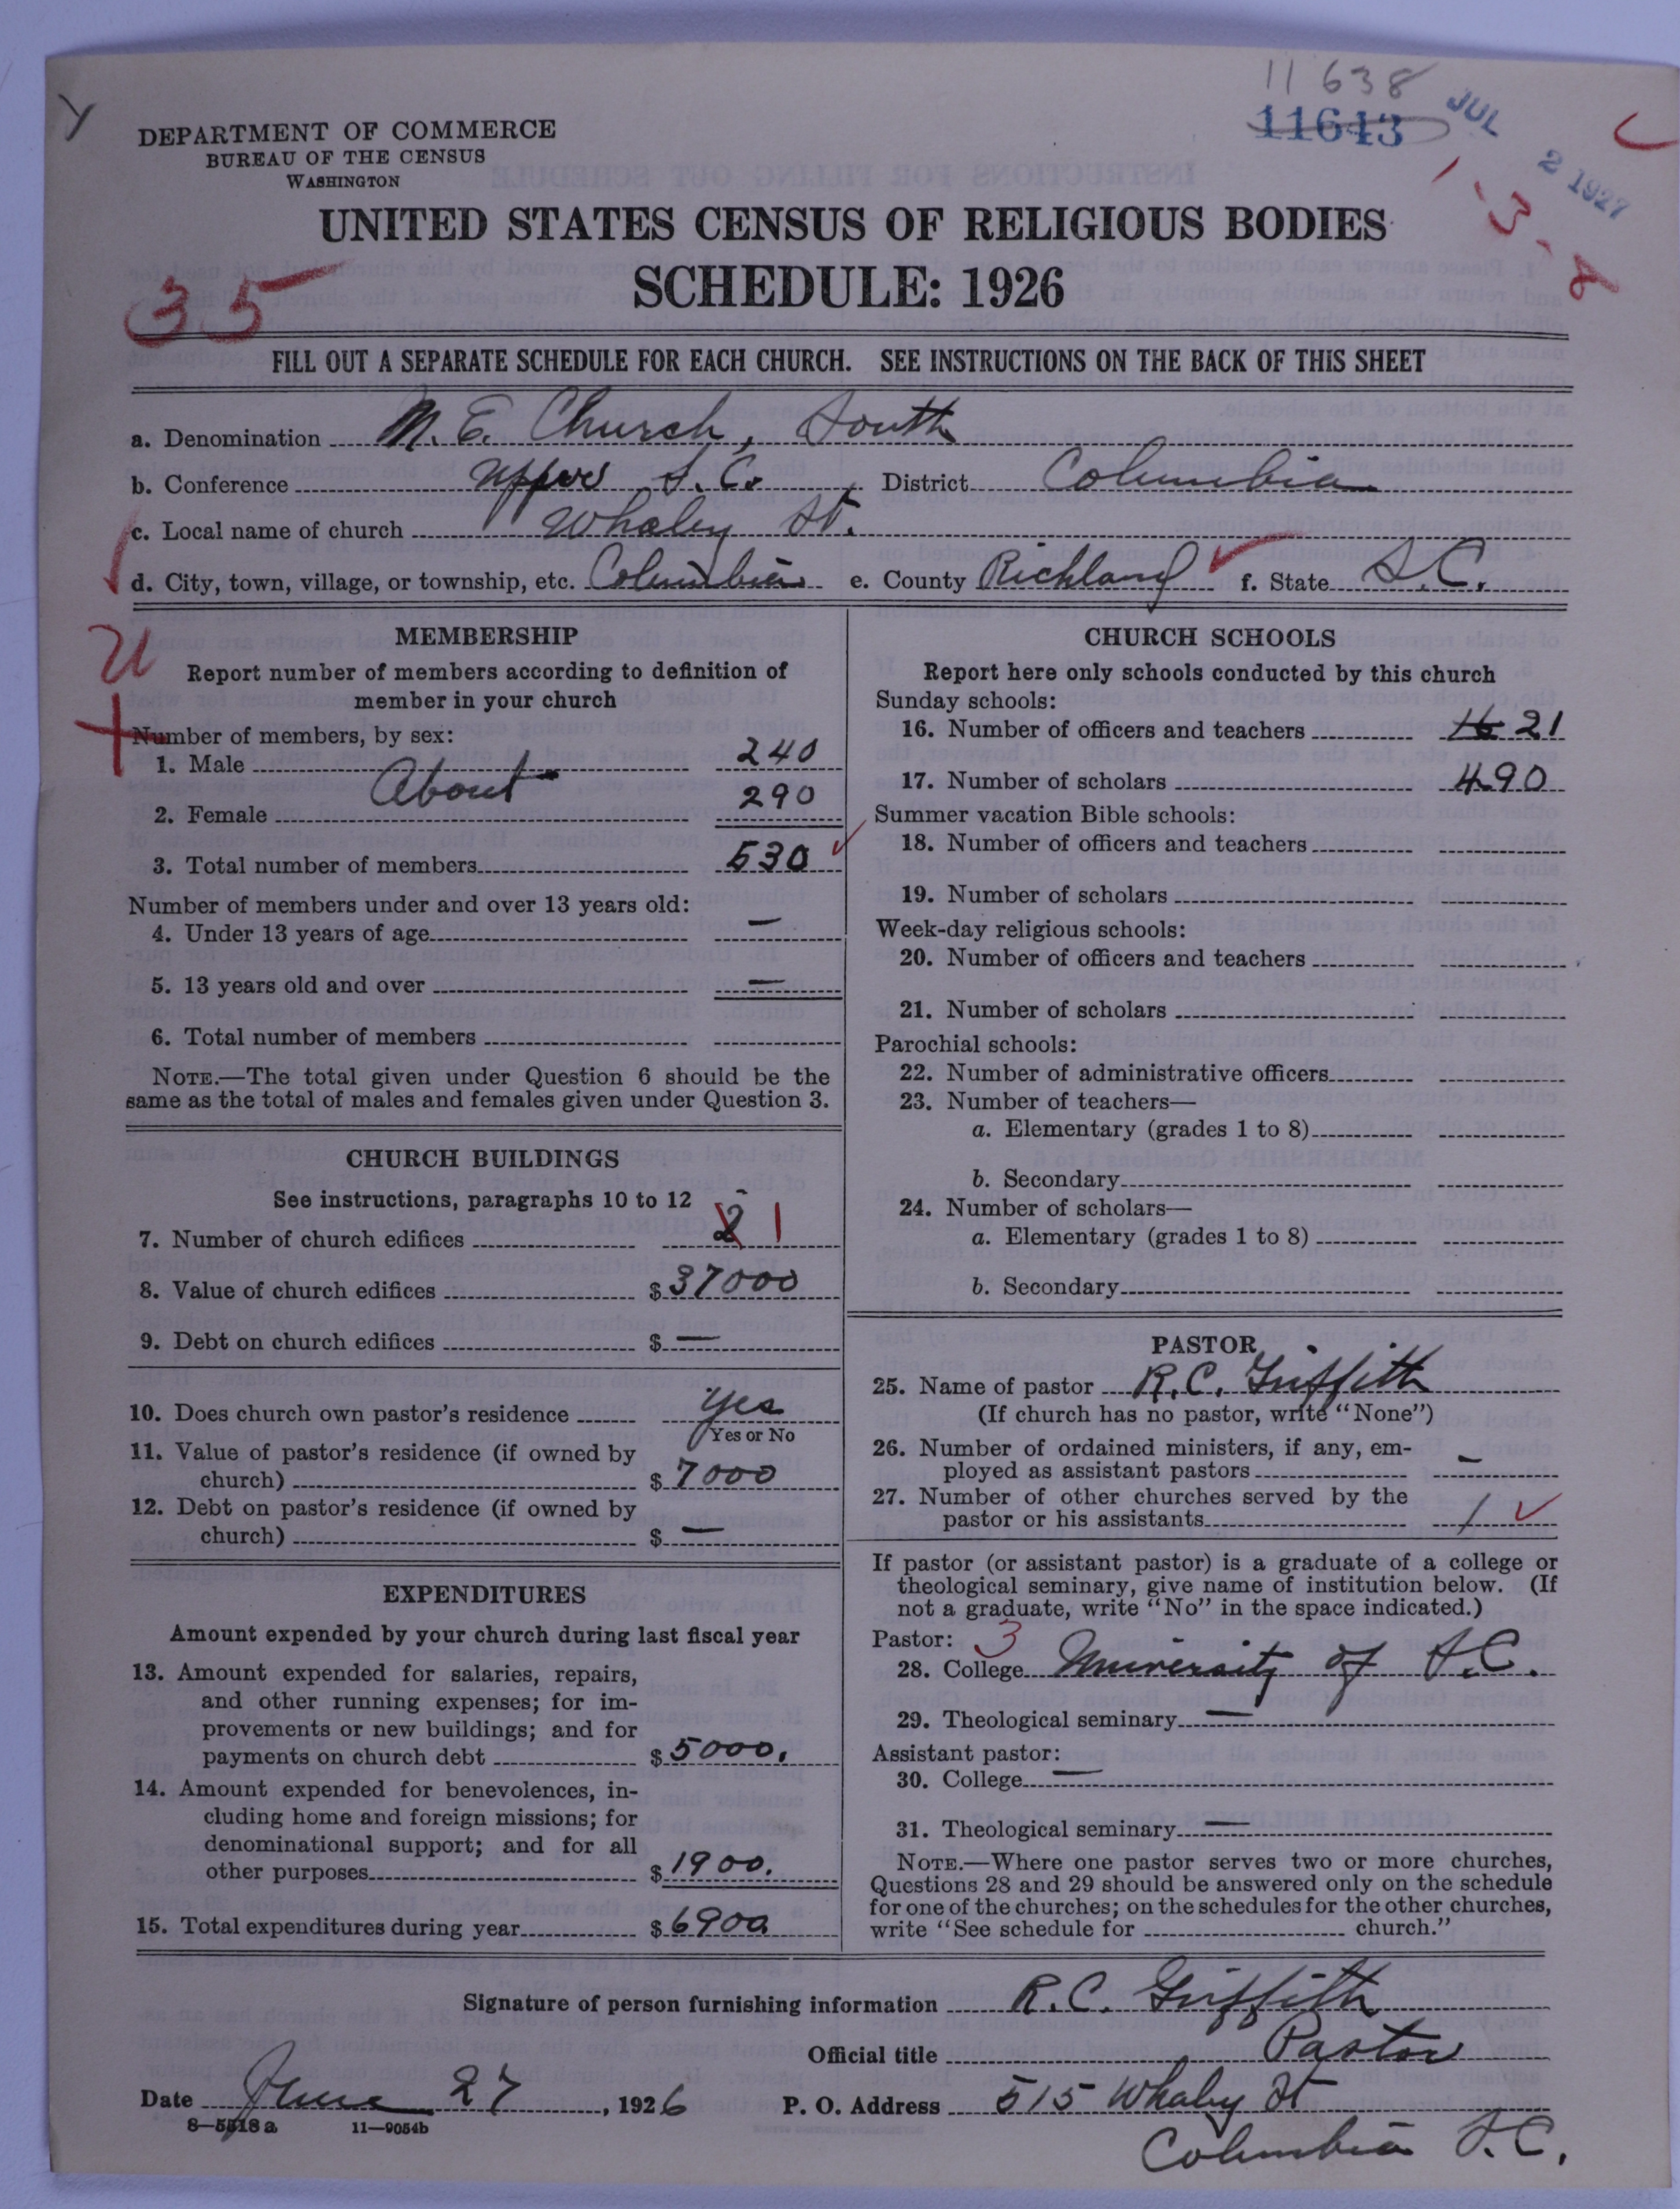 11638
11643
JUL 2 1927
1-3-8
Y
DEPARTMENT OF COMMERCE
BUREAU OF THE CENSUS
WASHINGTON
UNITED STATES CENSUS OF RELIGIOUS BODIES
SCHEDULE: 1926
35
FILL OUT A SEPARATE SCHEDULE FOR EACH CHURCH. SEE INSTRUCTIONS ON THE BACK OF THIS SHEET
a. Denomination M. E. Church, South
b. Conference Upper S.C. District Columbia
c. Local name of church Whaley St.
d. City, town, village, or township, etc. Columbia e. County Richland f. State S.C.
MEMBERSHIP
Report number of members according to definition of
member in your church
Number of members, by sex:
1. Male 240
About
2. Female 290
3. Total number of members 530
Number of members under and over 13 years old:
4. Under 13 years of age —
5. 13 years old and over —
6. Total number of members
NOTE.—The total given under Question 6 should be the
same as the total of males and females given under Question 3.
CHURCH BUILDINGS
See instructions, paragraphs 10 to 12
7. Number of church edifices 2 1
8. Value of church edifices $37000
9. Debt on church edifices $ —
10. Does church own pastor's residence Yes
Yes or No
11. Value of pastor's residence (if owned by
church) $7000
12. Debt on pastor's residence (if owned by
church) $ —
EXPENDITURES
Amount expended by your church during last fiscal year
13. Amount expended for salaries, repairs,
and other running expenses; for im-
provements or new buildings; and for
payments on church debt $5000.
14. Amount expended for benevolences, in-
cluding home and foreign missions; for
denominational support; and for all
other purposes $1900.
15. Total expenditures during year $6900
CHURCH SCHOOLS
Report here only schools conducted by this church
Sunday schools:
16. Number of officers and teachers 16 21
17. Number of scholars 490
Summer vacation Bible schools:
18. Number of officers and teachers
19. Number of scholars
Week-day religious schools:
20. Number of officers and teachers
21. Number of scholars
Parochial schools:
22. Number of administrative officers
23. Number of teachers—
a. Elementary (grades 1 to 8)
b. Secondary
24. Number of scholars—
a. Elementary (grades 1 to 8)
b. Secondary
PASTOR
25. Name of pastor R. C. Griffith
(If church has no pastor, write "None")
26. Number of ordained ministers, if any, em-
ployed as assistant pastors —
27. Number of other churches served by the
pastor or his assistants 1
If pastor (or assistant pastor) is a graduate of a college or
theological seminary, give name of institution below. (If
not a graduate, write "No" in the space indicated.)
Pastor: 3
28. College University of S.C.
29. Theological seminary —
Assistant pastor:
30. College —
31. Theological seminary —
NOTE.—Where one pastor serves two or more churches,
Questions 28 and 29 should be answered only on the schedule
for one of the churches; on the schedules for the other churches,
write "See schedule for church."
Signature of person furnishing information R. C. Griffith
Official title Pastor
Date June 27, 1926 P. O. Address 515 Whaley St
Columbia S.C.
8—5518a 11—9054b